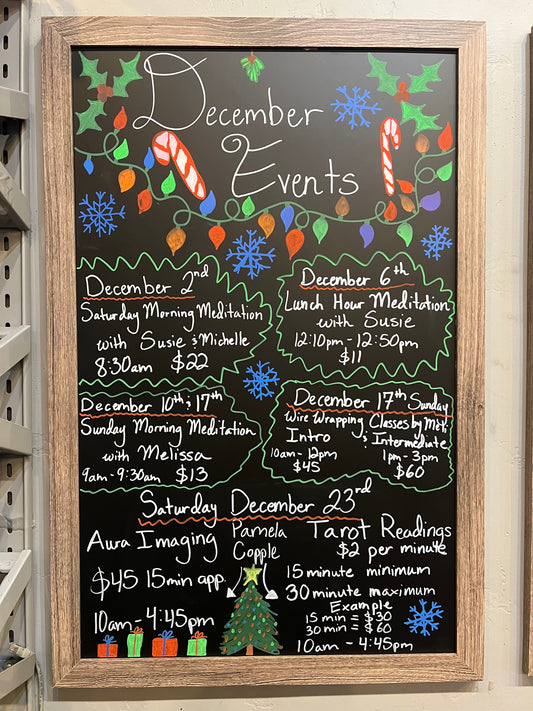 December
Events
December 2nd
Saturday Morning Meditation
with Susie & Michelle
8:30am $22
December 6th
Lunch Hour Meditation
with Susie
12:10pm - 12:50pm
$11
December 10th & 17th
Sunday Morning Meditation
with Melissa
9am - 9:30am $13
December 17th Sunday
Wire Wrapping Classes by Meti
Intro & Intermediate
10am - 12pm 1pm - 3pm
$45 $60
Saturday December 23rd
Aura Imaging
$45 15min app.
10am - 4:45pm
Pamela
Copple
Tarot Readings
$2 per minute
15 minute minimum
30 minute maximum
Example
15 min = $30
30 min = $60
10am - 4:45pm